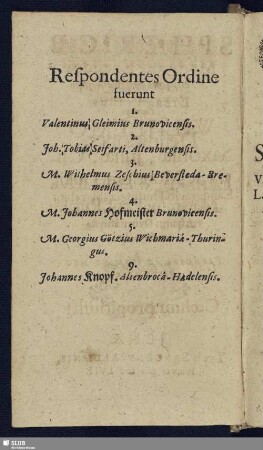 Respondentes Ordine
fuerunt
1.
Valentinus, Gleimius Brunovicensis.
2.
Joh. Tobias Seifarti, Altenburgensis.
3.
M. Wilhelmus Zeschius, Beversteda-Bre-
mensis.
4.
M. Johannes Hofmeister Brunovicensis.
5.
M. Georgius Götzius Wichmariâ-Thurin-
gus.
9.
Johannes Knopf. Altenbrocâ-Hadelensis.
S
V
L
SLUB